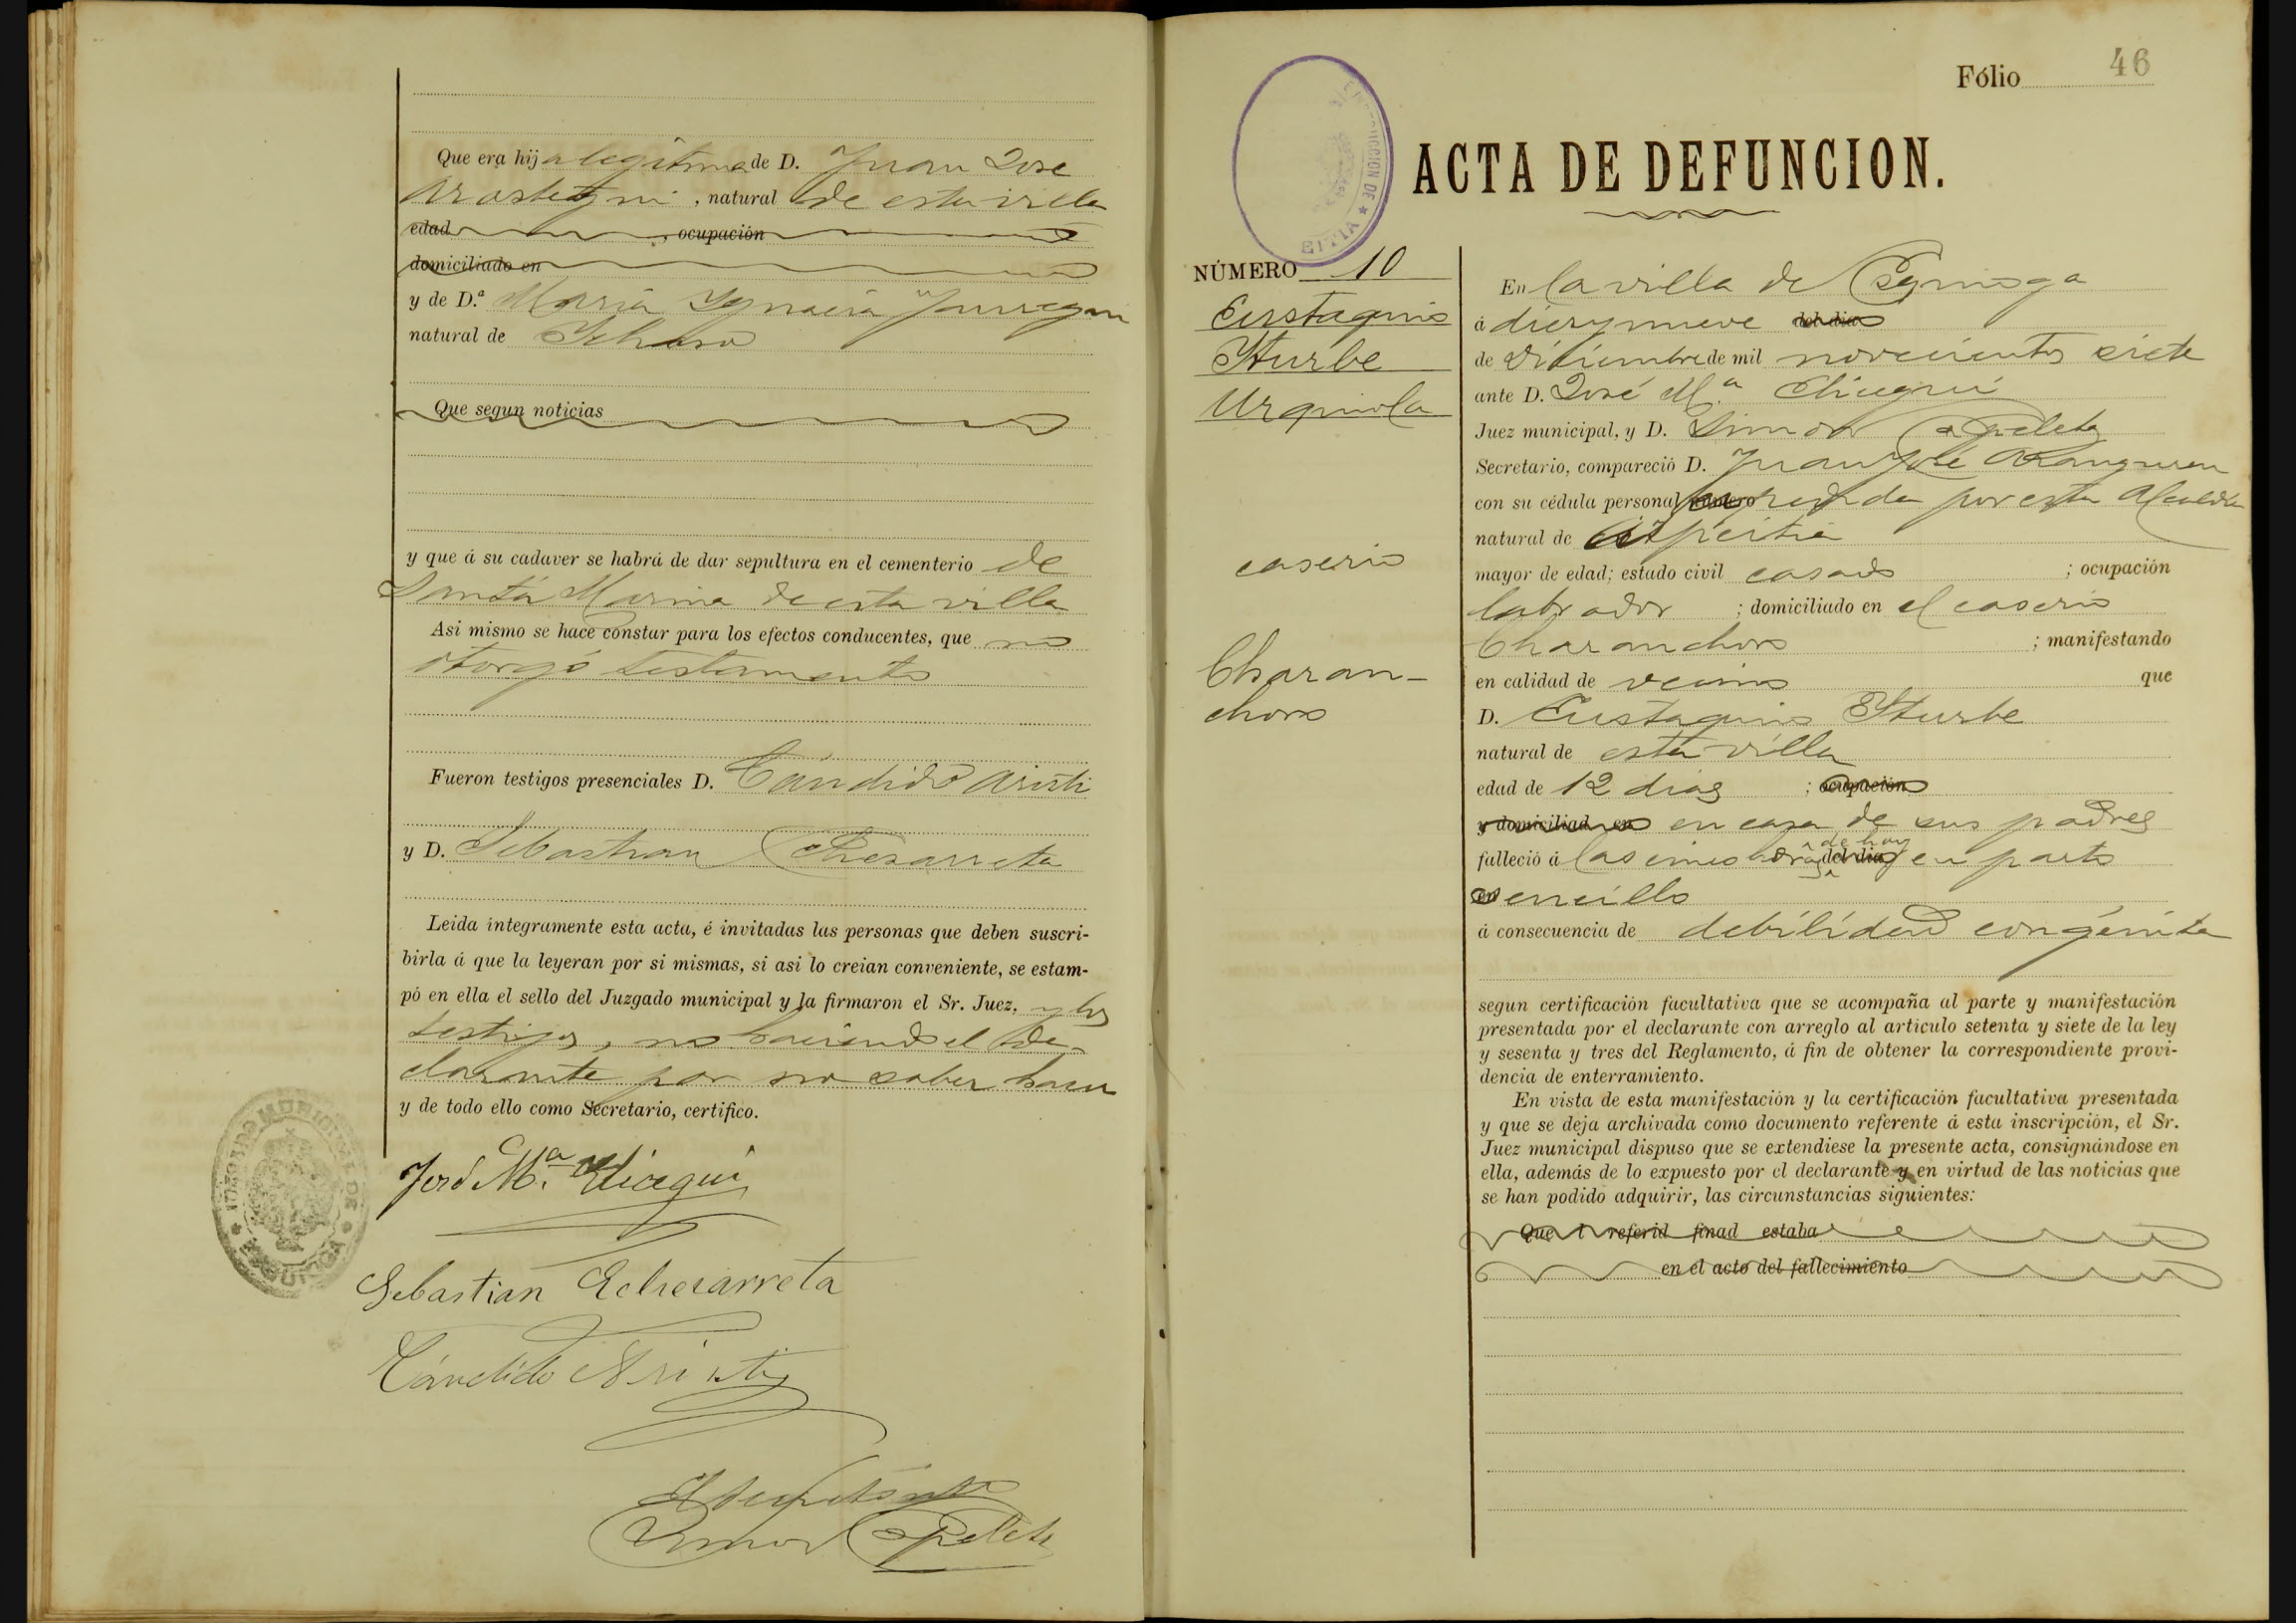 Que era hija legítima de D. Juan José
Arostegui, natural de esta villa
edad , ocupación
domiciliado en
y de D.ª María Ygnacia Jauregui
natural de
Que segun noticias
y que á su cadaver se habrá de dar sepultura en el cementerio de
Santa Marina de esta villa
Asi mismo se hace constar para los efectos conducentes, que no
otorgó testamento
Fueron testigos presenciales D. Cándido Aristi
y D. Sebastian Echezarreta
Leida íntegramente esta acta, é invitadas las personas que deben suscri-
birla á que la leyeran por si mismas, si asi lo creian conveniente, se estam-
pó en ella el sello del Juzgado municipal y la firmaron el Sr. Juez, y los
testigos, no haciendo el de-
clarante por no saber hacer
y de todo ello como Secretario, certifico.
JUZGADO MUNICIPAL DE
José M.ª Elicegui
Sebastián Echezarreta
Cándido Aristi
Simon
Fólio 46
ACTA DE DEFUNCION.
NÚMERO 10
Eustaquio
Yturbe
Urquiola
caserio
Charan-
choro
En la villa de
á diez y nueve del dia
de Diciembre de mil novecientos siete
ante D. José M.ª Elicegui
Juez municipal, y D. Simon
Secretario, compareció D. Juan José Aranguren
con su cédula personal número expedida por esta Alcaldía
natural de Azpeitia
mayor de edad; estado civil casado ; ocupación
labrador ; domiciliado en el caserio
Charanchoro ; manifestando
en calidad de vecino que
D. Eustaquio Yturbe
natural de esta villa
edad de 12 dias ; ocupación
y domiciliado en en casa de sus padres
falleció á las cinco horas del dia de hoy en parto
en sencillo
á consecuencia de debilidad congénita
segun certificación facultativa que se acompaña al parte y manifestación
presentada por el declarante con arreglo al articulo setenta y siete de la ley
y sesenta y tres del Reglamento, á fin de obtener la correspondiente provi-
dencia de enterramiento.
En vista de esta manifestación y la certificación facultativa presentada
y que se deja archivada como documento referente á esta inscripción, el Sr.
Juez municipal dispuso que se extendiese la presente acta, consignándose en
ella, además de lo expuesto por el declarante y en virtud de las noticias que
se han podido adquirir, las circunstancias siguientes:
Que l referid finad estaba
en el acto del fallecimiento